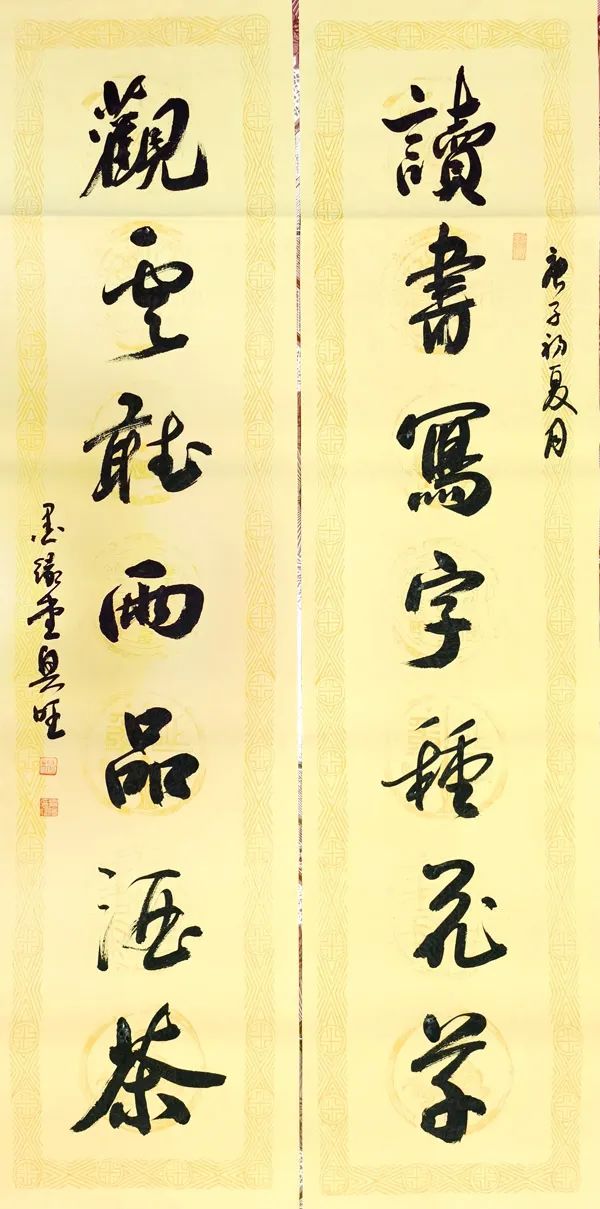 庚子初夏月
讀書寫字種花草
觀雲聽雨品酒茶
墨緣堂旺